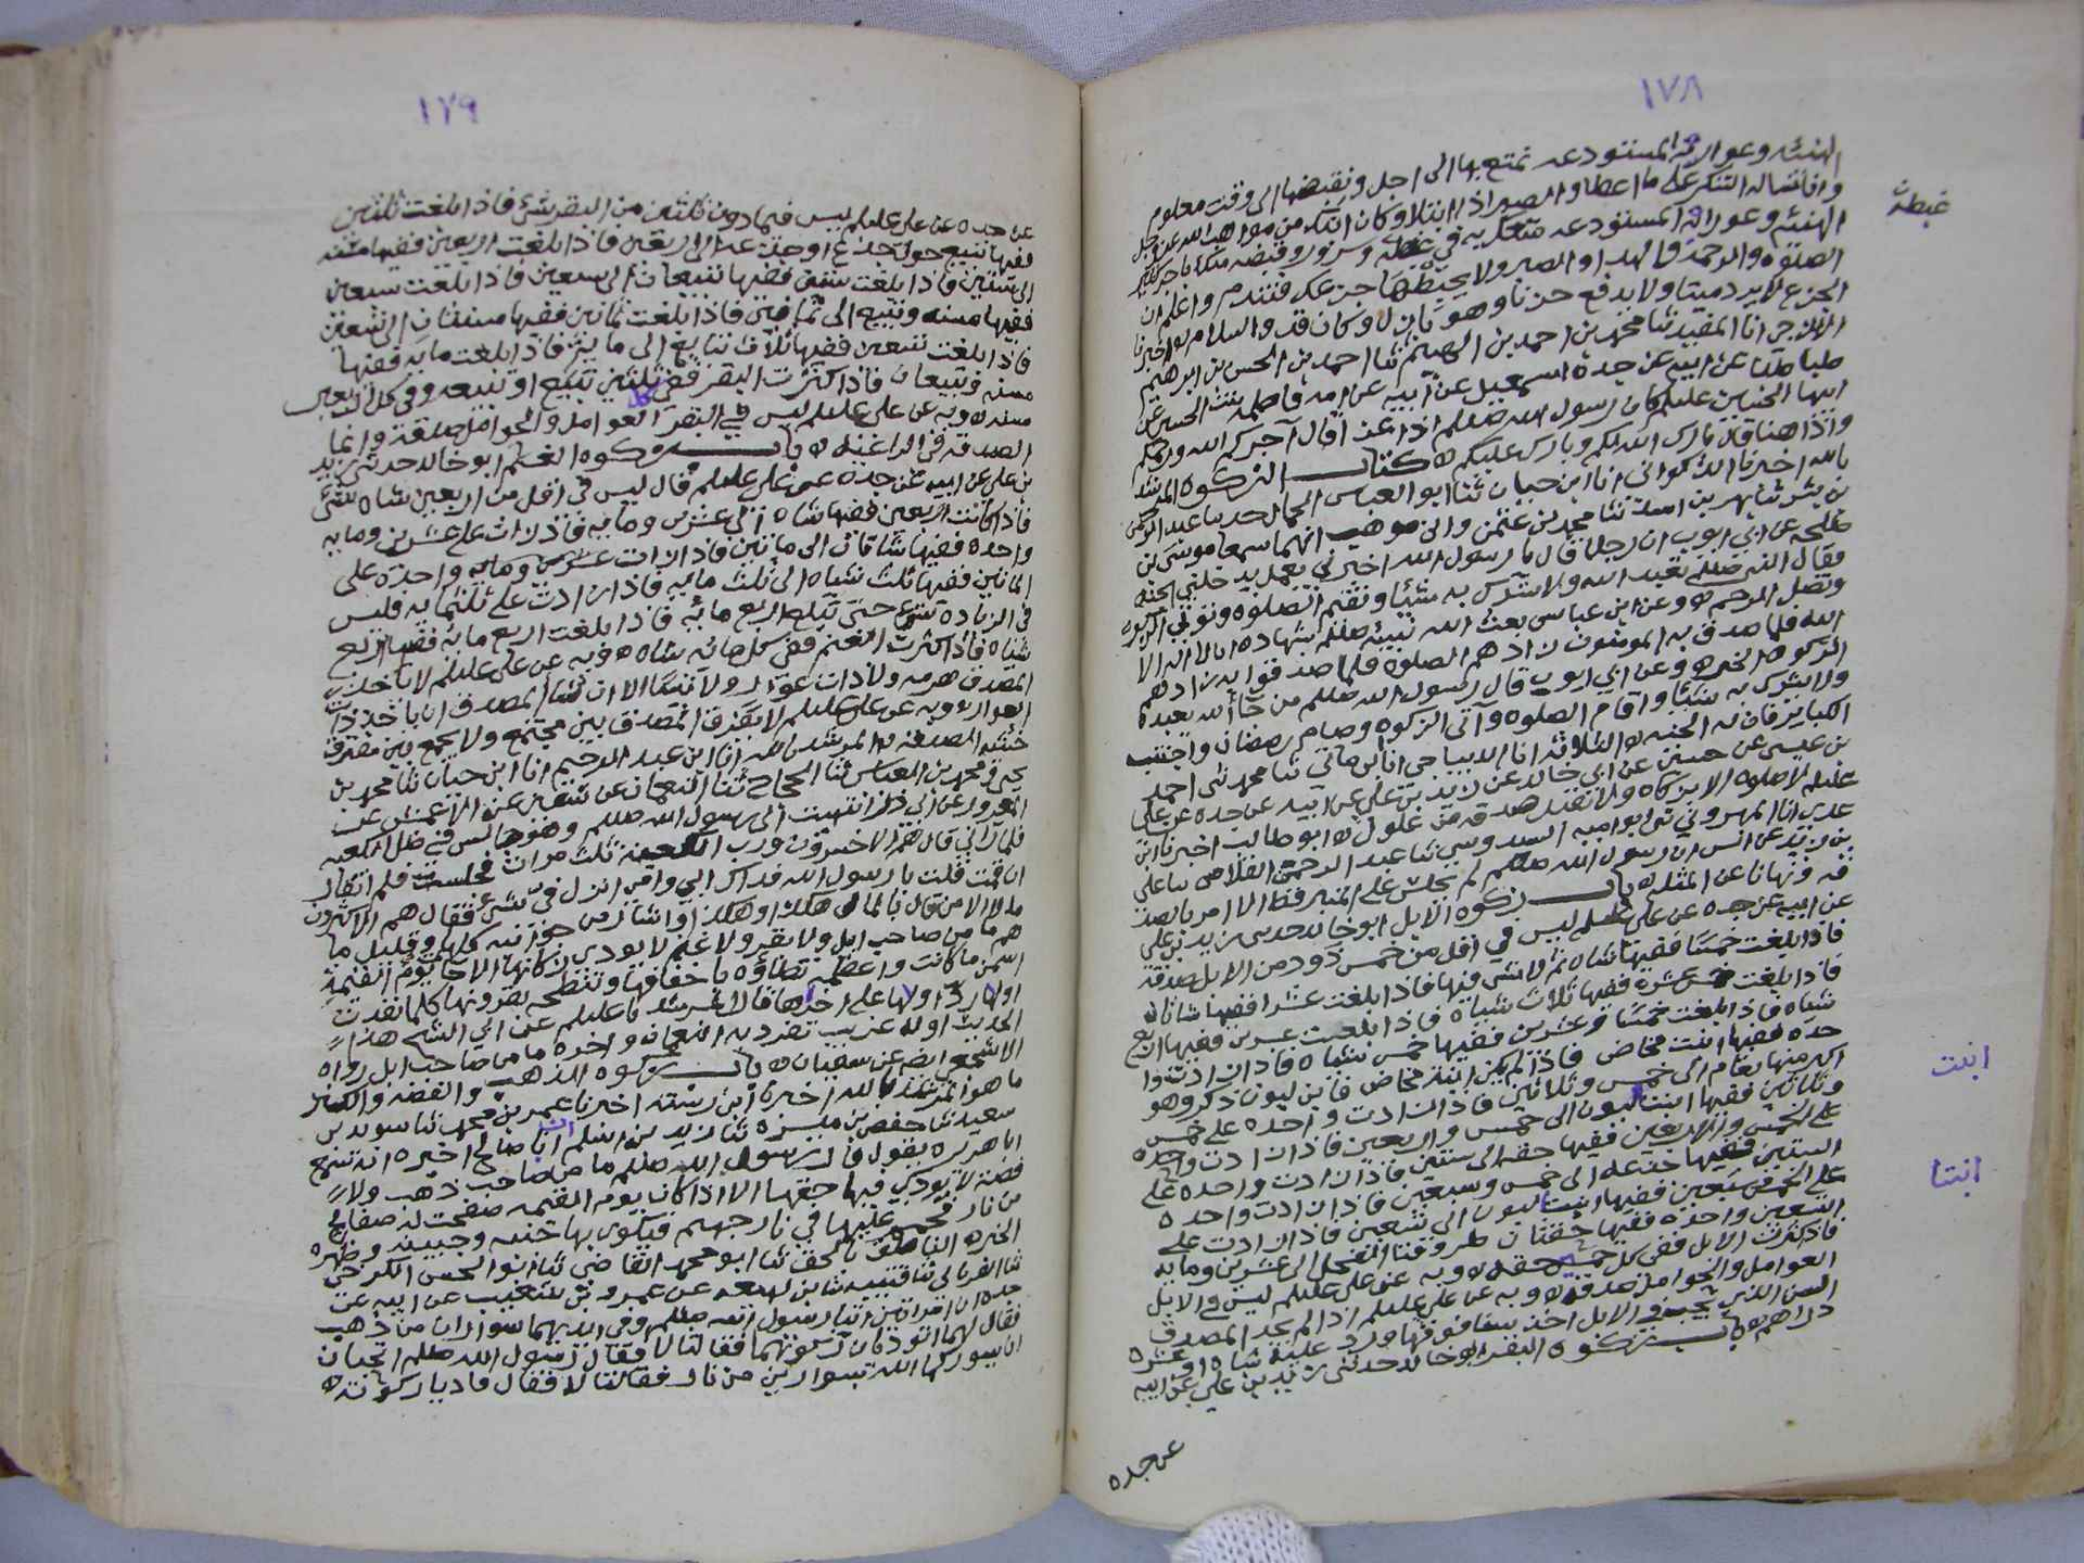 ١٧٨
الهنيئه وعواريه المستودعه نمتع بها الى اجل ونقبضها الى وقت معلوم
وانا نساله الشكر على ما اعطا والصبر اذا ابتلا وكان ابنك من مواهب الله عز وجل
غبطه
الهنيئه وعواريه المستودعه متعك به في غبطه وسرور وقبضه منك باجر كبير
الصلوه والرحمه والهدا والصبر ولا يحبطها جزعك فتندم واعلم ان
الجزع لا يرد ميتا ولا يدفع حزنا وهو نازل وكان قد والسلام اخبرنا
انا المفيد ثنا محمد بن احمد بن الهيثم ثنا احمد بن الحسن بن ابرهيم
طباطبا عن ابيه عن جده اسمعيل عن ابيه عن امه فاطمه بنت الحسين عن
ابيها الحسين عليلم كان رسول الله صللم اذا عزا قال آجركم الله ورحمكم
واذا هنا قال بارك الله لكم وبارك عليكم ه كتاب الزكوه المرشد
بالله اخبرنا الذكواني انا ابن حيان ثنا ابو العباس الجمال حدثنا عبد الرحمن
بن بشر ثنا بهز بن اسد ثنا محمد بن عثمن وابن موهب انهما سمعا موسى بن
طلحه عن ابي ايوب ان رجلا قال يا رسول الله اخبرني بعمل يدخلني الجنه
فقال النبي صللم تعبد الله ولا تشرك به شيئا وتقيم الصلوه وتوتي الزكوه
وتصل الرحم ه وعن ابن عباس بعث الله نبيه صللم بشهاده ان لا اله الا
الله فلما صدق به المومنون زادهم الصلوه فلما صدقوا به زادهم
الزكوه الخبر ه وعن ابي ايوب قال رسول الله صللم من جا الله بعبده
ولا يشرك به شيئا واقام الصلوه وآتى الزكوه وصام رمضان واجتنب
الكبائر فان له الجنه ه الثلاثه انا الديباجي انا ابن ماتي ثنا محمد ثنى احمد
بن عيسى عن حسين عن ابي خالد عن زيد بن علي عن ابيه عن جده عن علي
عليلم لا صلوه الا بزكاه ولا تقبل صدقه من غلول ه ابو طالب اخبرنا ابن
عدي انا المهروني ثنى ابو اميه السدوسي ثنا عبد الرحمن القلاص ثنا علي
بن زيد عن انس ان رسول الله صللم لم يجلس على المنبر قط الا امر بالصد
قه ونهانا عن المثله ه باب زكوه الابل ابو خالد حدثنى زيد بن علي
عن ابيه عن جده عن علي عليلم ليس في اقل من خمس ذود من الابل صدقه
فاذا بلغت خمسا ففيها شاه ثم لا شى فيها فاذا بلغت عشرا ففيها شاتان
فاذا بلغت خمس عشره ففيها ثلاث شياه فاذا بلغت عشرين ففيها اربع
شياه فاذا بلغت خمسا وعشرين ففيها خمس شياه فاذا زادت وا
حده ففيها ابنت مخاض فاذا لم يكن ابنة مخاض فابن لبون ذكر وهو
ابنت
اكبر منها بعام الى خمس وثلاثين فاذا زادت واحده على خمس
وثلاثين ففيها ابنت لبون الى خمس واربعين فاذا زادت واحده
على الخمس واربعين ففيها حقه الى ستين فاذا زادت واحده على
الستين ففيها جذعه الى خمس وسبعين فاذا زادت واحده
ابنتا
على الخمس وسبعين ففيها ابنتا لبون الى تسعين فاذا زادت على
التسعين واحده ففيها حقتان طروقتا الفحل الى عشرين ومايه
فاذا كثرت الابل ففي كل خمسين حقه ه وبه عن علي عليلم ليس في الابل
العوامل والحوامل صدقه ه وبه عن علي عليلم اذا لم يجد المصدق
السن الذي يجب في الابل اخذ سنا فوقها ورد عليه شاه او عشره
دراهم ه باب زكوه البقر ابو خالد حدثنى زيد بن علي عن ابيه
عن جده
١٧٩
عن جده عن علي عليلم ليس فيما دون ثلثين من البقر شى فاذا بلغت ثلثين
ففيها تبيع حولي جذع او جذعه الى اربعين فاذا بلغت اربعين ففيها مسنه
الى ستين فاذا بلغت ستين ففيها تبيعان الى سبعين فاذا بلغت سبعين
ففيها مسنه وتبيع الى ثمانين فاذا بلغت ثمانين ففيها مسنتان الى تسعين
فاذا بلغت تسعين ففيها ثلاث تبايع الى مايه فاذا بلغت مايه ففيها
مسنه وتبيعان فاذا كثرت البقر ففي كل ثلثين تبيع او تبيعه وفي كل اربعين
مسنه ه وبه عن علي عليلم ليس في البقر العوامل والحوامل صدقه وانما
الصدقه في الراعيه ه باب زكوه الغنم ابو خالد حدثنى زيد
بن علي عن ابيه عن جده عن علي عليلم قال ليس في اقل من اربعين شاه شى
فاذا كانت اربعين ففيها شاه الى عشرين ومايه فاذا زادت على عشرين ومايه
واحده ففيها شاتان الى مائتين فاذا زادت واحده على
المائتين ففيها ثلث شياه الى ثلث مايه فاذا زادت على ثلثمايه فليس
في الزياده شى حتى تبلغ اربع مايه فاذا بلغت اربع مايه ففيها اربع
شياه فاذا كثرت الغنم ففي كل مائه شاه ه وبه عن علي عليلم لا ياخذ
المصدق هرمه ولا ذات عوار ولا تيسا الا ان يشا المصدق ان ياخذ ذات
العوار ه وبه عن علي عليلم لا يفرق المصدق بين مجتمع ولا يجمع بين مفترق
خشيه الصدقه ه المرشد بالله انا ابن عبد الرحيم انا ابن حيان ثنا محمد بن
يحيى ومحمد بن العباس ثنا الحجاج ثنا النعمان عن سفين عن الاعمش عن
المعرور عن ابي ذر انتهيت الى رسول الله صللم وهو جالس في ظل الكعبه
فلما رآني قال هم الاخسرون ورب الكعبة ثلث مرات فجلست فلم اتقار
ان قمت فقلت يا رسول الله فداك ابي وامي انزل في شى فقال هم الاكثرون
مالا الا من قال بالمال هكذا وهكذا واشار من جوانبه كلها وقليل ما
هم ما من صاحب ابل ولا بقر ولا غنم لا يودي زكاتها الا جا يوم القيمة
اسمن ما كانت واعظمه تطاؤه باخفافها وتنطحه بقرونها كلما نفدت
اولها رد اولها على اخرها قال المرشد بالله عليلم عن ابي الشيخ هذا
الحديث اوله غريب تفرد به النعمان واخره ما من صاحب ابل رواه
الاشجعي ايضا عن سفيان ه باب زكوه الذهب والفضه والكنز
ما هو المرشد بالله اخبرنا ابن ريذه اخبرنا عمر بن محمد ثنا سويد بن
سعيد ثنا حفص بن ميسره ثنا زيد بن اسلم ان ابا صالح اخبره انه سمع
ابا هريره يقول قال رسول الله صللم ما من صاحب ذهب ولا
فضه لا يودي فيها حقها الا اذا كان يوم القيمه صفحت له صفايح
من نار فحمى عليها في نار جهنم فيكوى بها جنبه وجبينه وظهره
الخبر ه الناطق بالحق ثنا ابو محمد القاضي ثنا ابو الحسن الكرخي
ثنا الفريابي ثنا قتيبه ثنا ابن لهيعه عن عمرو بن شعيب عن ابيه عن
جده ان امراتين اتتا رسول الله صللم وفي ايديهما سواران من ذهب
فقال لهما اتوديان زكوتهما فقالتا لا فقال رسول الله صللم اتحبان
ان يسوركما الله بسوارين من نار فقالتا لا فقال فاديا زكوته ه